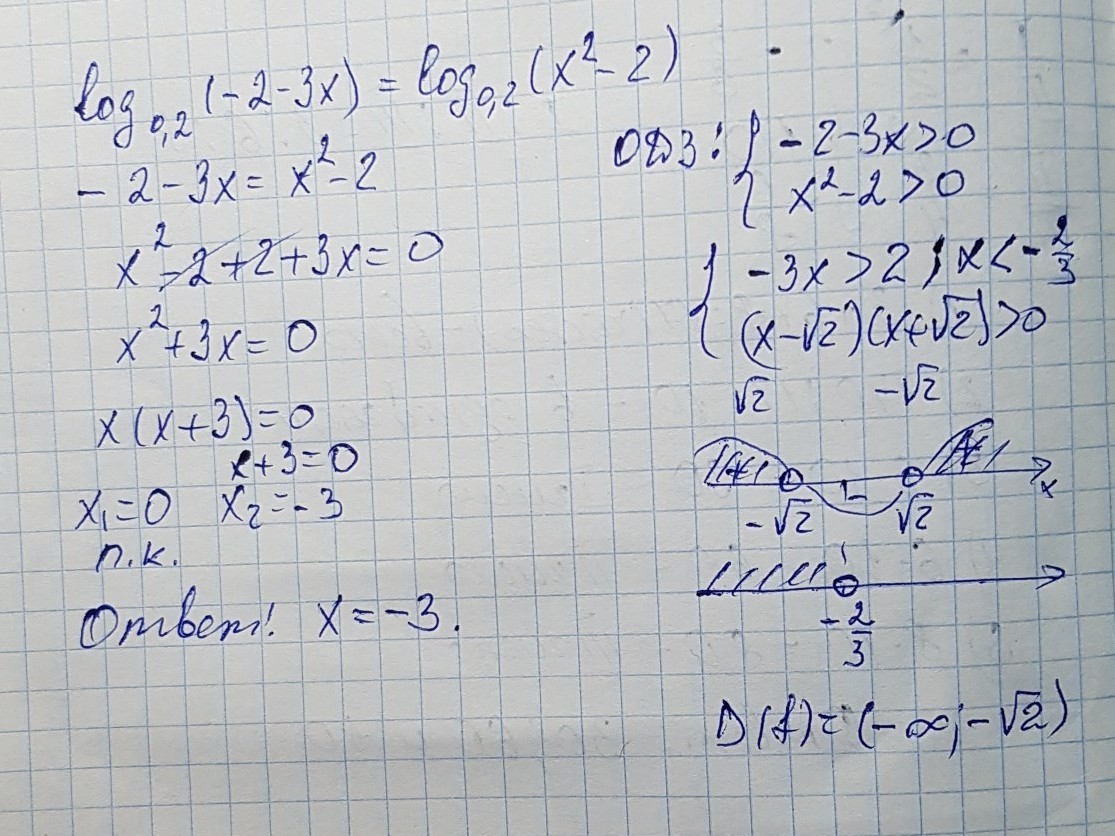 log₀,₂(-2-3x) = log₀,₂(x²-2)
-2-3x = x²-2
x²-2+2+3x=0
x²+3x=0
x(x+3)=0
x+3=0
x₁=0 x₂=-3
п.к.
Ответ! x=-3.
ОДЗ: { -2-3x>0
x²-2>0
{ -3x>2; x<-2/3
(x-√2)(x+√2)>0
√2 -√2
-√2 - √2 x
-2/3
D(f)=(-∞;-√2)